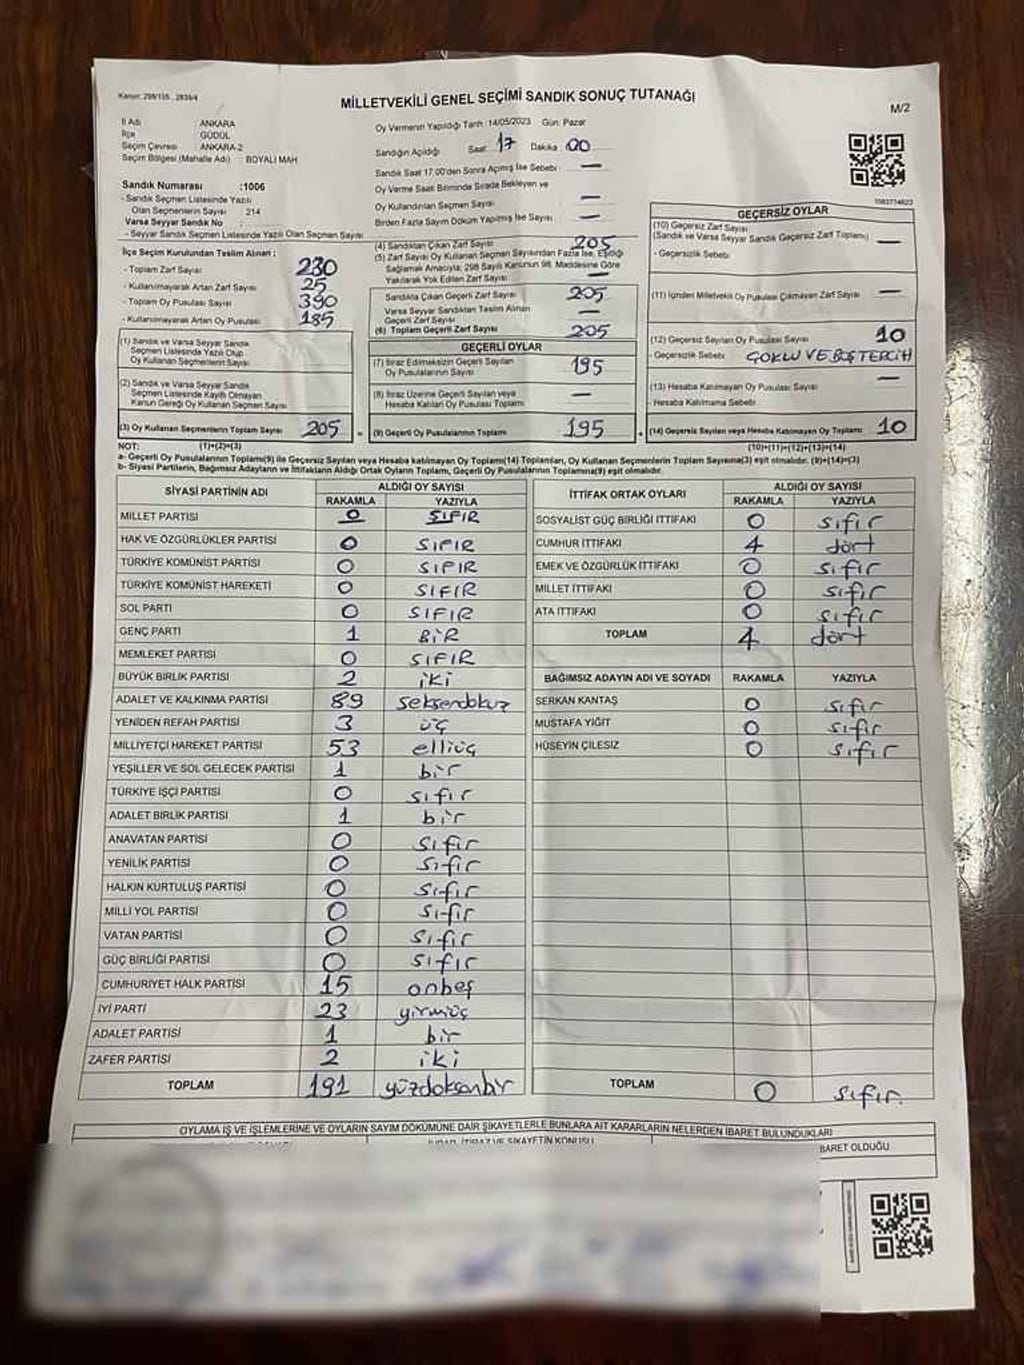 Kanun: 298/105 , 2839/4
MİLLETVEKİLİ GENEL SEÇİMİ SANDIK SONUÇ TUTANAĞI
M/2
İl Adı ANKARA
İlçe GÜDÜL
Seçim Çevresi ANKARA-2
Seçim Bölgesi (Mahalle Adı) : BOYALI MAH
Sandık Numarası :1006
- Sandık Seçmen Listesinde Yazılı
Olan Seçmenlerin Sayısı : 214
Varsa Seyyar Sandık No :
- Seyyar Sandık Seçmen Listesinde Yazılı Olan Seçmen Sayısı
İlçe Seçim Kurulundan Teslim Alınan :
- Toplam Zarf Sayısı 230
- Kullanılmayarak Artan Zarf Sayısı 25
- Toplam Oy Pusulası Sayısı 390
- Kullanılmayarak Artan Oy Pusulası 185
(1) Sandık ve Varsa Seyyar Sandık
Seçmen Listesinde Yazılı Olup
Oy Kullanan Seçmenlerin Sayısı
(2) Sandık ve Varsa Seyyar Sandık
Seçmen Listesinde Kayıtlı Olmayan
Kanun Gereği Oy Kullanan Seçmen Sayısı
(3) Oy Kullanan Seçmenlerin Toplam Sayısı 205
Oy Vermenin Yapıldığı Tarih :14/05/2023 Gün: Pazar
Sandığın Açıldığı Saat 17 Dakika 00
Sandık Saat 17.00'den Sonra Açılmış İse Sebebi : —
Oy Verme Saati Bitiminde Sırada Bekleyen ve
Oy Kullandırılan Seçmen Sayısı —
Birden Fazla Sayım Döküm Yapılmış İse Sayısı —
(4) Sandıktan Çıkan Zarf Sayısı 205
(5) Zarf Sayısı Oy Kullanan Seçmen Sayısından Fazla İse, Eşitliği
Sağlamak Amacıyla; 298 Sayılı Kanunun 98. Maddesine Göre
Yakılarak Yok Edilen Zarf Sayısı —
Sandıkta Çıkan Geçerli Zarf Sayısı 205
Varsa Seyyar Sandıktan Teslim Alınan
Geçerli Zarf Sayısı —
(6) Toplam Geçerli Zarf Sayısı 205
GEÇERLİ OYLAR
(7) İtiraz Edilmeksizin Geçerli Sayılan
Oy Pusulalarının Sayısı 195
(8) İtiraz Üzerine Geçerli Sayılan veya
Hesaba Katılan Oy Pusulası Toplamı —
(9) Geçerli Oy Pusulalarının Toplamı 195
1083774623
GEÇERSİZ OYLAR
(10) Geçersiz Zarf Sayısı
(Sandık ve Varsa Seyyar Sandık Geçersiz Zarf Toplamı) —
- Geçersizlik Sebebi
(11) İçinden Milletvekili Oy Pusulası Çıkmayan Zarf Sayısı —
(12) Geçersiz Sayılan Oy Pusulası Sayısı 10
- Geçersizlik Sebebi ÇOKLU VE BOŞ TERCİH
(13) Hesaba Katılmayan Oy Pusulası Sayısı —
- Hesaba Katılmama Sebebi
(14) Geçersiz Sayılan veya Hesaba Katılmayan Oy Toplamı 10
NOT: (1)+(2)=(3) (10)+(11)+(12)+(13)=(14)
a- Geçerli Oy Pusulalarının Toplamı(9) ile Geçersiz Sayılan veya Hesaba katılmayan Oy Toplamı(14) Toplamları, Oy Kullanan Seçmenlerin Toplam Sayısına(3) eşit olmalıdır. (9)+(14)=(3)
b- Siyasi Partilerin, Bağımsız Adayların ve İttifakların Aldığı Ortak Oyların Toplamı, Geçerli Oy Pusulalarının Toplamına(9) eşit olmalıdır.
SİYASİ PARTİNİN ADI ALDIĞI OY SAYISI
RAKAMLA YAZIYLA
MİLLET PARTİSİ 0 SIFIR
HAK VE ÖZGÜRLÜKLER PARTİSİ 0 SIFIR
TÜRKİYE KOMÜNİST PARTİSİ 0 SIFIR
TÜRKİYE KOMÜNİST HAREKETİ 0 SIFIR
SOL PARTİ 0 SIFIR
GENÇ PARTİ 1 BİR
MEMLEKET PARTİSİ 0 SIFIR
BÜYÜK BİRLİK PARTİSİ 2 iki
ADALET VE KALKINMA PARTİSİ 89 seksendokuz
YENİDEN REFAH PARTİSİ 3 üç
MİLLİYETÇİ HAREKET PARTİSİ 53 elliüç
YEŞİLLER VE SOL GELECEK PARTİSİ 1 bir
TÜRKİYE İŞÇİ PARTİSİ 0 sıfır
ADALET BİRLİK PARTİSİ 1 bir
ANAVATAN PARTİSİ 0 sıfır
YENİLİK PARTİSİ 0 sıfır
HALKIN KURTULUŞ PARTİSİ 0 sıfır
MİLLİ YOL PARTİSİ 0 sıfır
VATAN PARTİSİ 0 sıfır
GÜÇ BİRLİĞİ PARTİSİ 0 sıfır
CUMHURİYET HALK PARTİSİ 15 onbeş
İYİ PARTİ 23 yirmiüç
ADALET PARTİSİ 1 bir
ZAFER PARTİSİ 2 iki
TOPLAM 191 yüzdoksanbir
İTTİFAK ORTAK OYLARI ALDIĞI OY SAYISI
RAKAMLA YAZIYLA
SOSYALİST GÜÇ BİRLİĞİ İTTİFAKI 0 sıfır
CUMHUR İTTİFAKI 4 dört
EMEK VE ÖZGÜRLÜK İTTİFAKI 0 sıfır
MİLLET İTTİFAKI 0 sıfır
ATA İTTİFAKI 0 sıfır
TOPLAM 4 dört
BAĞIMSIZ ADAYIN ADI VE SOYADI RAKAMLA YAZIYLA
SERKAN KANTAŞ 0 sıfır
MUSTAFA YİĞİT 0 sıfır
HÜSEYİN ÇİLESİZ 0 sıfır
TOPLAM 0 sıfır.
OYLAMA İŞ VE İŞLEMLERİNE VE OYLARIN SAYIM DÖKÜMÜNE DAİR ŞİKAYETLERLE BUNLARA AİT KARARLARIN NELERDEN İBARET BULUNDUKLARI
İTİRAZ VE ŞİKAYETİN KONUSU
BARET OLDUĞU